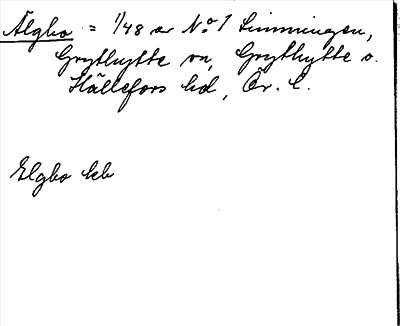 Älgbo = 1/48 av No 1 Limmingen,
Grythytte sn, Grythytte o.
Hällefors hd, Ör. l.
Elgbo kb